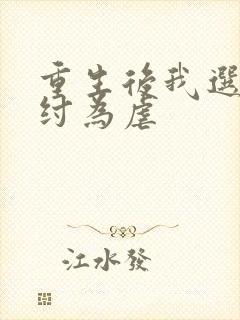 重生後我選
紂為虐
江水發